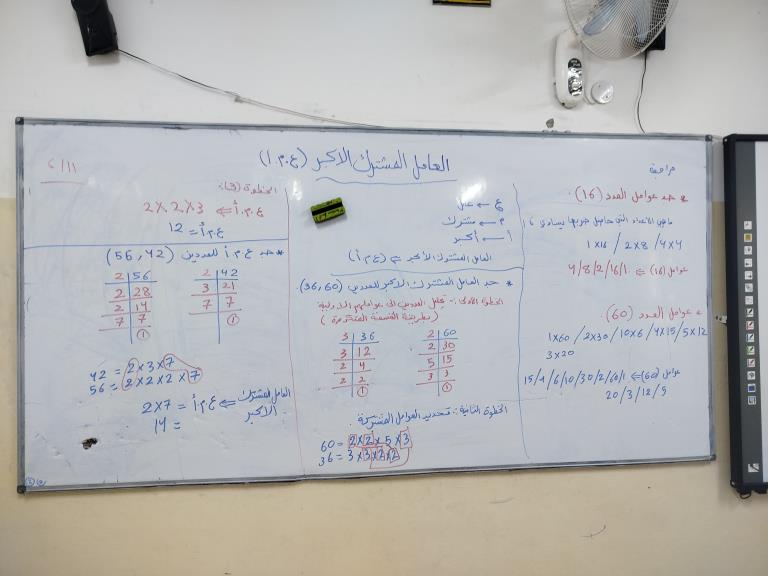 العامل المشترك الأكبر (ع.م.أ)
6/11
مراجعة
* جد عوامل العدد (16).
ماهي الأعداد التي حاصل ضربها يساوي
1×16 / 2×8 / 4×4
عوامل (16) ⇐ 1/16/2/8/4
* عوامل العدد (60)
1×60 / 2×30 / 10×6 / 4×15 / 5×12
3×20
عوامل (60) ⇐ 1/60/2/30/10/6/4/15
5/12/3/20
ع ← عامل
م ← مشترك
أ ← أكبر
العامل المشترك الأكبر ⇐ (ع.م.أ)
* جد العامل المشترك الأكبر للعددين (36,60).
الخطوة الأولى: تحليل العددين إلى عواملهم الأولية
(بطريقة القسمة المتكررة)
2 | 60
2 | 30
5 | 15
3 | 3
1
3 | 36
3 | 12
2 | 4
2 | 2
1
الخطوة الثانية: تحديد العوامل المشتركة
60 = 2×2×5×3
36 = 3×3×2×2
الخطوة (3):
ع.م.أ ⇐ 2×2×3
ع.م.أ = 12
* جد ع.م.أ للعددين (56,42)
2 | 42
3 | 21
7 | 7
1
2 | 56
2 | 28
2 | 14
7 | 7
1
42 = 2×3×7
56 = 2×2×2×7
العامل المشترك الأكبر ⇐ ع.م.أ = 2×7
= 14